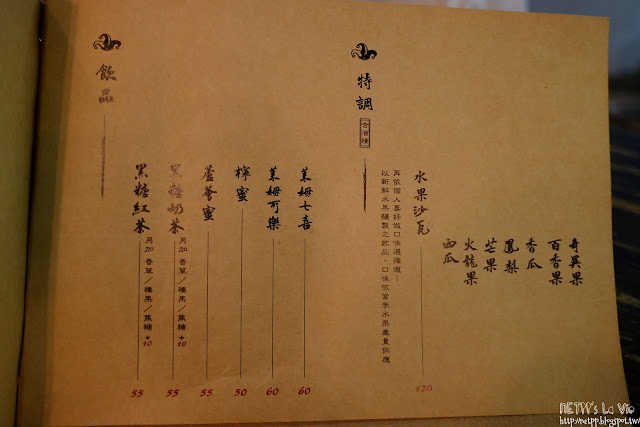 奇異果
百香果
香瓜
鳳梨
芒果
火龍果
西瓜
特調
含酒精
水果沙瓦
120
再依個人喜好做口味選擇喔！
以新鮮水果釀製之飲品，口味依當季水果產量供應
萊姆七喜
60
萊姆可樂
60
檸蜜
50
蘆薈蜜
55
黑糖奶茶
另加 香草／榛果／焦糖+10
55
黑糖紅茶
另加 香草／榛果／焦糖+10
55
飲品
NETPP's La Vie
http://netpp.blogspot.tw/